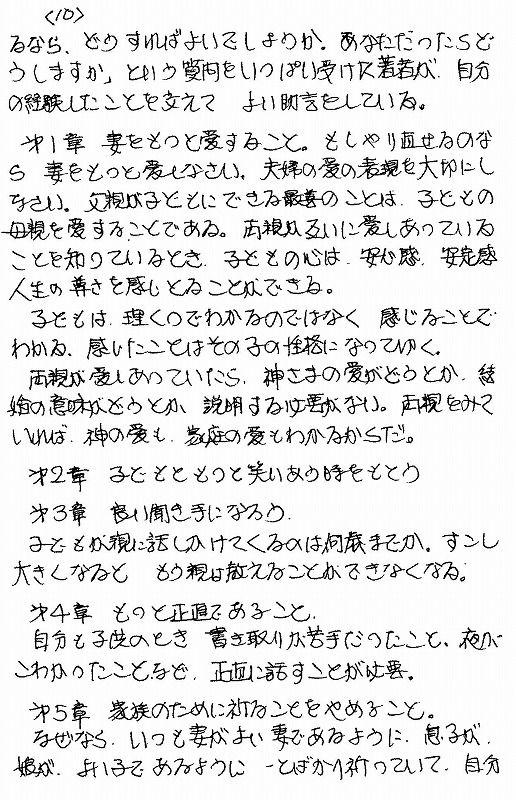 〈10〉
るなら、どうすればよいでしょうか。あなただったらど
うしますか」という質問をいっぱい受けた著者が、自分
の経験したことを交えて よい助言をしている。
第1章 妻をもっと愛すること。もしやり直せるのな
ら 妻をもっと愛しなさい。夫婦の愛の表現を大切にし
なさい。父親が子どもにできる最善のことは、子どもの
母親を愛することである。両親が互いに愛しあっている
ことを知っているとき、子どもの心は、安心感、安定感
人生の尊さを感じとることができる。
子どもは、理くつでわかるのではなく 感じることで
わかる、感じたことはその子の性格になってゆく。
両親が愛しあっていたら、神さまの愛がどうとか、結
婚の意味がどうとか、説明する必要がない。両親をみて
いれば、神の愛も、家庭の愛もわかるからだ。
第2章 子どもともっと笑いあう時をもとう
第3章 良い聞き手になろう、
子どもが親に話しかけてくるのは何歳までか。すこし
大きくなると もう親は教えることができなくなる。
第4章 もっと正直であること、
自分も子供のとき 書き取りが苦手だったこと、夜が
こわかったことなど、正直に話すことが必要。
第5章 家族のために祈ることをやめること。
なぜなら、いつも妻がよい妻であるように、息子が、
娘が、よい子であるように ーとばかり祈っていて、自分